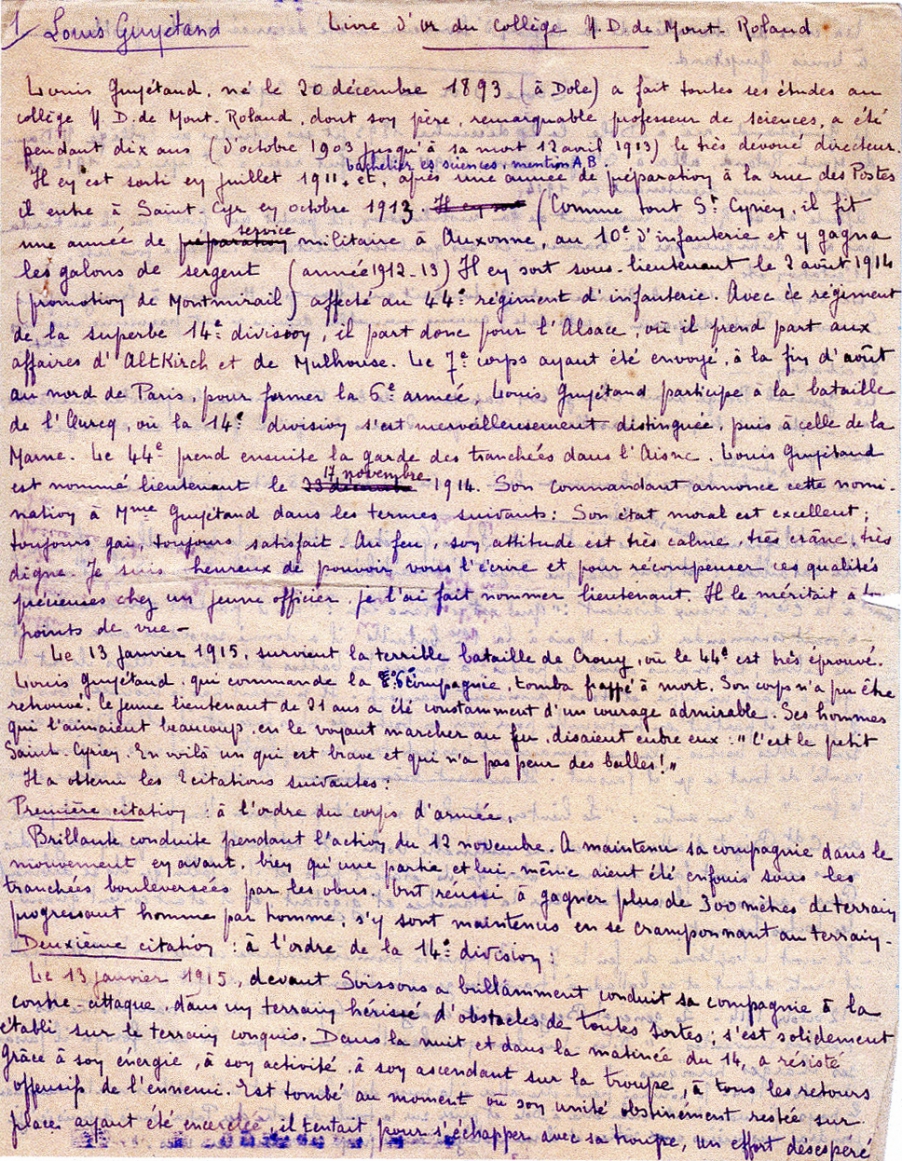 1/ Louis Guyétand Livre d'or du collège N.D. de Mont-Roland
Louis Guyétand, né le 20 décembre 1893 (à Dole) a fait toutes ses études au
collège N.D. de Mont-Roland, dont son père, remarquable professeur de sciences, a été
pendant dix ans (d'octobre 1903 jusqu'à sa mort 12 avril 1913) le très dévoué directeur.
bachelier ès sciences, mention A,B
Il en est sorti en juillet 1911, et, après une année de préparation à la rue des Postes
il entre à Saint-Cyr en octobre 1913. (Comme tout St Cyrien, il fit
service
une année de préparation militaire à Auxonne, au 10e d'infanterie et y gagna
les galons de sergent (année 1912-13) Il en sort sous-lieutenant le 2 août 1914
(promotion de Montmirail) affecté au 44e régiment d'infanterie. Avec ce régiment
de la superbe 14e division, il part donc pour l'Alsace, où il prend part aux
affaires d'Altkirch et de Mulhouse. Le 7e corps ayant été envoyé, à la fin d'août
au nord de Paris, pour former la 6e armée, Louis Guyétand participe à la bataille
de l'Ourcq, où la 14e division s'est merveilleusement distinguée, puis à celle de la
Marne. Le 44e prend ensuite la garde des tranchées dans l'Aisne. Louis Guyétand
17 novembre
est nommé lieutenant le 1914. Son commandant annonce cette nomi-
nation à Mme Guyétand dans les termes suivants: Son état moral est excellent;
toujours gai, toujours satisfait - Au feu, son attitude est très calme, très crâne, très
digne. Je suis heureux de pouvoir vous l'écrire et pour récompenser ces qualités
précieuses chez un jeune officier je l'ai fait nommer lieutenant. Il le méritait à
points de vue -
Le 13 janvier 1915, survient la terrible bataille de Crouy, où le 44e est très éprouvé.
Louis Guyétand, qui commande la compagnie, tomba frappé à mort. Son corps n'a pu être
retrouvé. Le jeune lieutenant de 21 ans a été constamment d'un courage admirable. Ses hommes
qui l'aimaient beaucoup, en le voyant marcher au feu, disaient entre eux: "C'est le petit
Saint-Cyrien. En voilà un qui est brave et qui n'a pas peur des balles!"
Il a obtenu les 2 citations suivantes:
Première citation: à l'ordre du corps d'armée,
Brillante conduite pendant l'action du 12 novembre. A maintenu sa compagnie dans le
mouvement en avant, bien qu'une partie et lui-même aient été enfouis sous les
tranchées bouleversées par les obus. Ont réussi à gagner plus de 300 mètres de terrain
progressant homme par homme, s'y sont maintenus en se cramponnant au terrain -
Deuxième citation: à l'ordre de la 14e division:
Le 13 janvier 1915, devant Soissons a brillamment conduit sa compagnie à la
contre-attaque, dans un terrain hérissé d'obstacles de toutes sortes; s'est solidement
établi sur le terrain conquis. Dans la nuit et dans la matinée du 14, a résisté
grâce à son énergie, à son activité, à son ascendant sur la troupe, à tous les retours
offensifs de l'ennemi. Est tombé au moment où son unité obstinément restée sur
place ayant été encerclée, il tentait pour s'échapper avec sa troupe, un effort désespéré